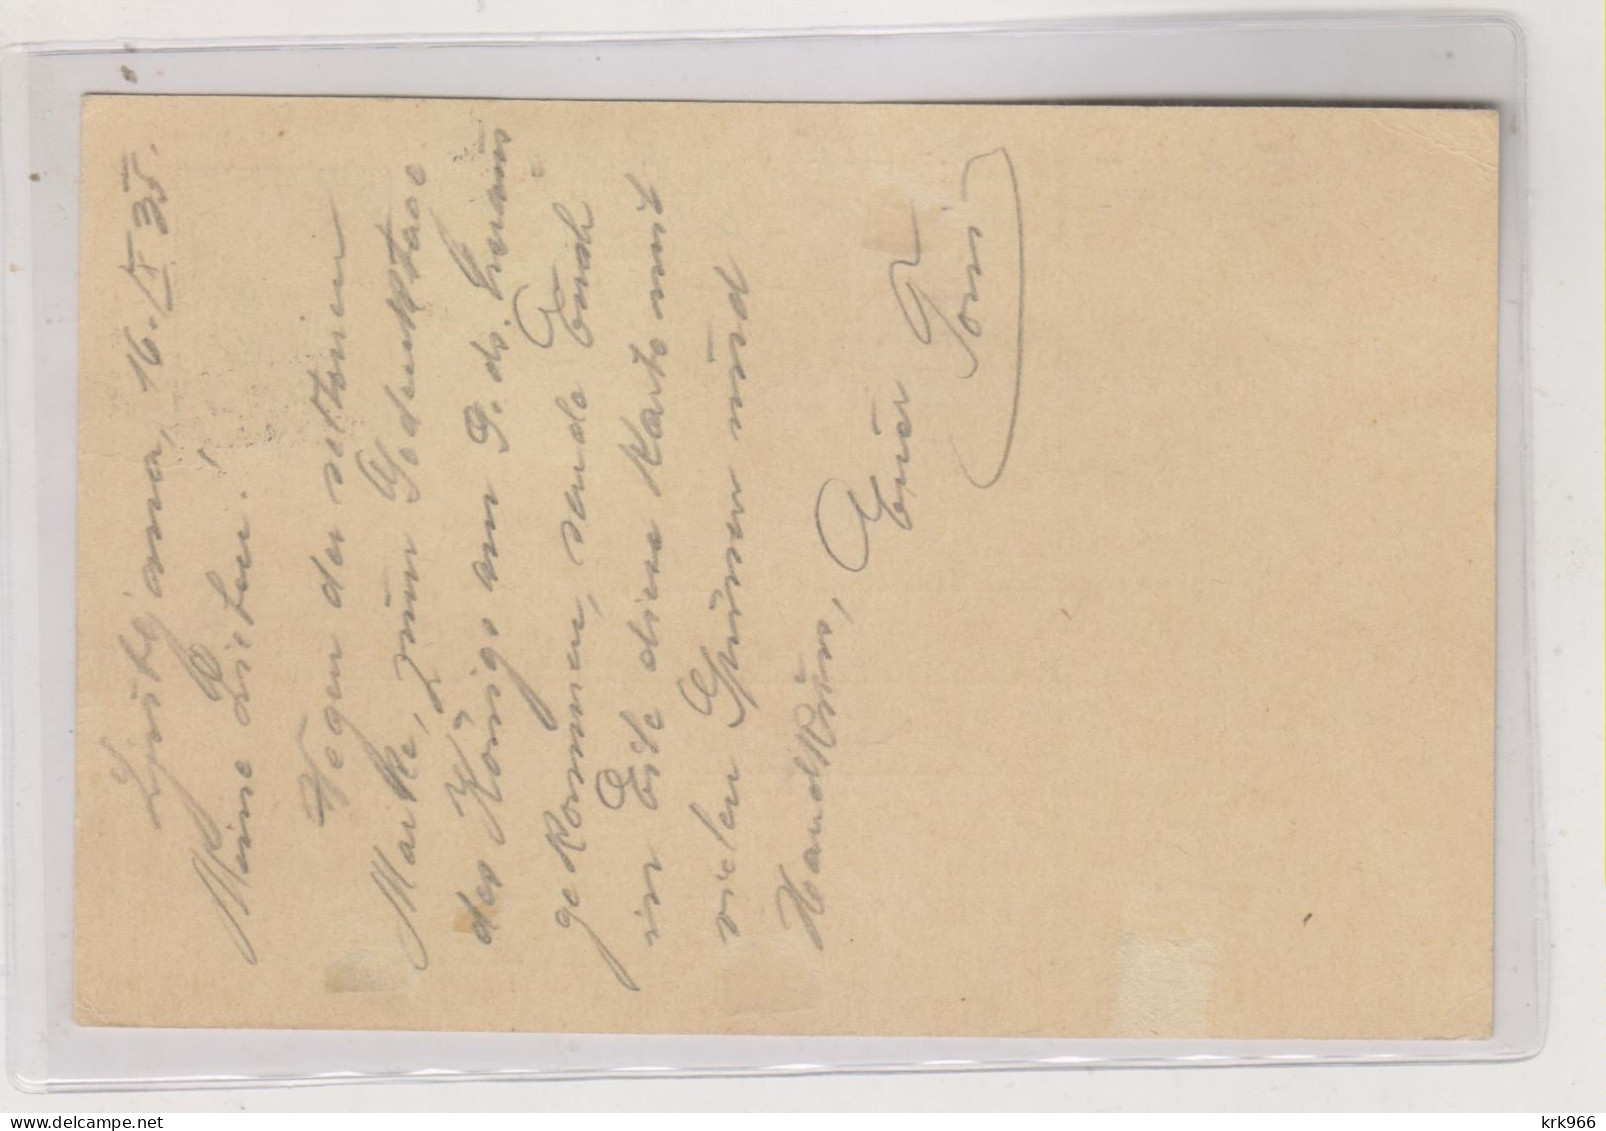 Ljubljana, 16./X 35.
Meine Lieben!
Wegen der seltenen
Marke, zum Gedenktage
des Königs am 9. ds. heraus=
gekommen, sende Euch
in Eile diese Karte mit
vielen Grüssen und
Handküss, Euer
Toni
krk966